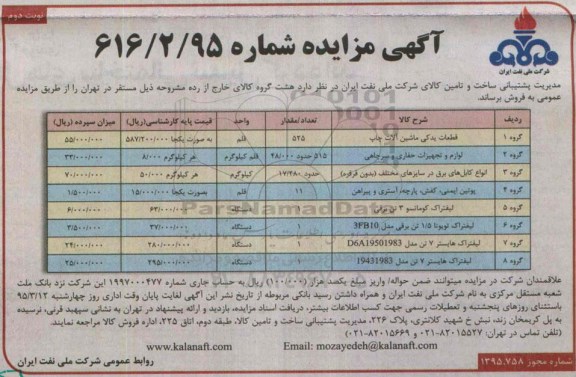 نوبت دوم
آگهی مزایده شماره ۶۱۶/۲/۹۵
شرکت ملی نفت ایران
مدیریت پشتیبانی ساخت و تامین کالای شرکت ملی نفت ایران در نظر دارد هشت گروه کالای خارج از رده مشروحه ذیل مستقر در تهران را از طریق مزایده
عمومی به فروش برساند.
ردیف شرح کالا تعداد/مقدار واحد قیمت پایه کارشناسی(ریال) میزان سپرده (ریال)
گروه ۱ قطعات یدکی ماشین آلات چاپ ۵۲۵ قلم به صورت یکجا ۵۸۷/۲۰۰/۰۰۰ ۵۵/۰۰۰/۰۰۰
گروه ۲ لوازم و تجهیزات حفاری و سرچاهی ۵۱۵ حدود ۴۸/۰۰۰ قلم کیلوگرم هر کیلوگرم ۸/۰۰۰ ۳۳/۰۰۰/۰۰۰
گروه ۳ انواع کابل‌های برق در سایزهای مختلف (بدون قرقره) حدود ۱۷/۴۸۰ کیلوگرم هر کیلوگرم ۵۰/۰۰۰ ۷۰/۰۰۰/۰۰۰
گروه ۴ پوتین ایمنی، کفش، پارچه، آستری و پیراهن ۱۱ قلم بصورت یکجا ۱۵/۰۰۰/۰۰۰ ۱/۵۰۰/۰۰۰
گروه ۵ لیفتراک کوماتسو ۳ تن برقی ۱ دستگاه ۶۳/۰۰۰/۰۰۰ ۶/۰۰۰/۰۰۰
گروه ۶ لیفتراک تویوتا ۱/۵ تن برقی مدل 3FB10 ۱ دستگاه ۳۷/۰۰۰/۰۰۰ ۳/۵۰۰/۰۰۰
گروه ۷ لیفتراک هایستر ۷ تن مدل D6A19501983 ۱ دستگاه ۲۸۰/۰۰۰/۰۰۰ ۲۴/۰۰۰/۰۰۰
گروه ۸ لیفتراک هایستر ۷ تن مدل 19431983 ۱ دستگاه ۲۹۵/۰۰۰/۰۰۰ ۲۵/۰۰۰/۰۰۰
ParsNamadData
علاقمندان شرکت در مزایده میتوانند ضمن حواله/ واریز مبلغ یکصد هزار (۱۰۰/۰۰۰) ریال به حساب جاری شماره ۱۹۹۷۰۰۰۴۷۷ این شرکت نزد بانک ملت
شعبه مستقل مرکزی به نام شرکت ملی نفت ایران و همراه داشتن رسید بانکی مربوطه از تاریخ نشر این آگهی لغایت پایان وقت اداری روز چهارشنبه ۹۵/۳/۱۲
باستثنای روزهای پنجشنبه و تعطیلات رسمی جهت کسب اطلاعات بیشتر، دریافت اسناد مزایده، بازدید و ارائه پیشنهاد در تهران به نشانی سپهبد قرنی، نرسیده
به پل کریمخان زند، نبش خ شهید کلانتری، پلاک ۲۲۶، مدیریت پشتیبانی ساخت و تامین کالا، طبقه دوم، اتاق ۲۲۵، اداره فروش کالا مراجعه نمایند.
(تلفن تماس در تهران: ۸۲۰۱۵۵۲۷-۰۲۱ و ۸۲۰۱۵۶۶۹-۰۲۱)
www.kalanaft.com Email: mozayedeh@kalanaft.com
شماره مجوز ۱۳۹۵.۷۵۸
روابط عمومی شرکت ملی نفت ایران